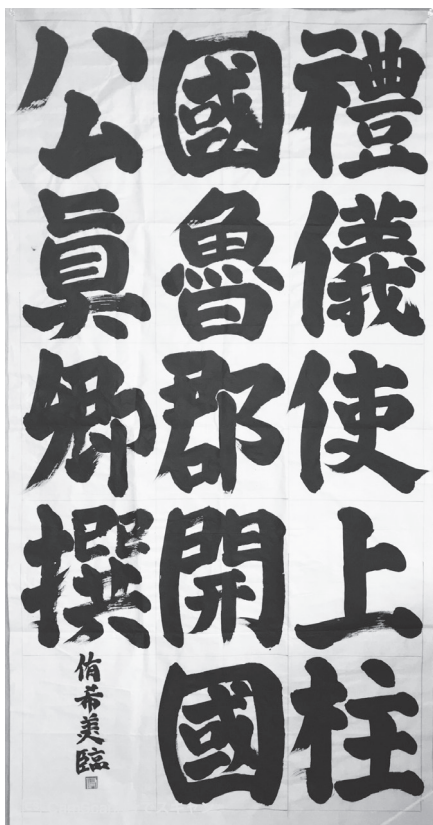 禮儀使上柱
國魯郡開國
公眞卿撰
侑希美臨